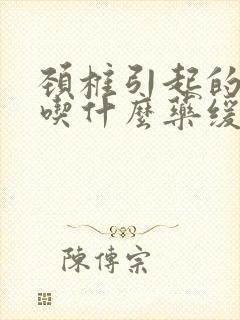 頚椎引起的
喫什麼藥緩
陳傳宗